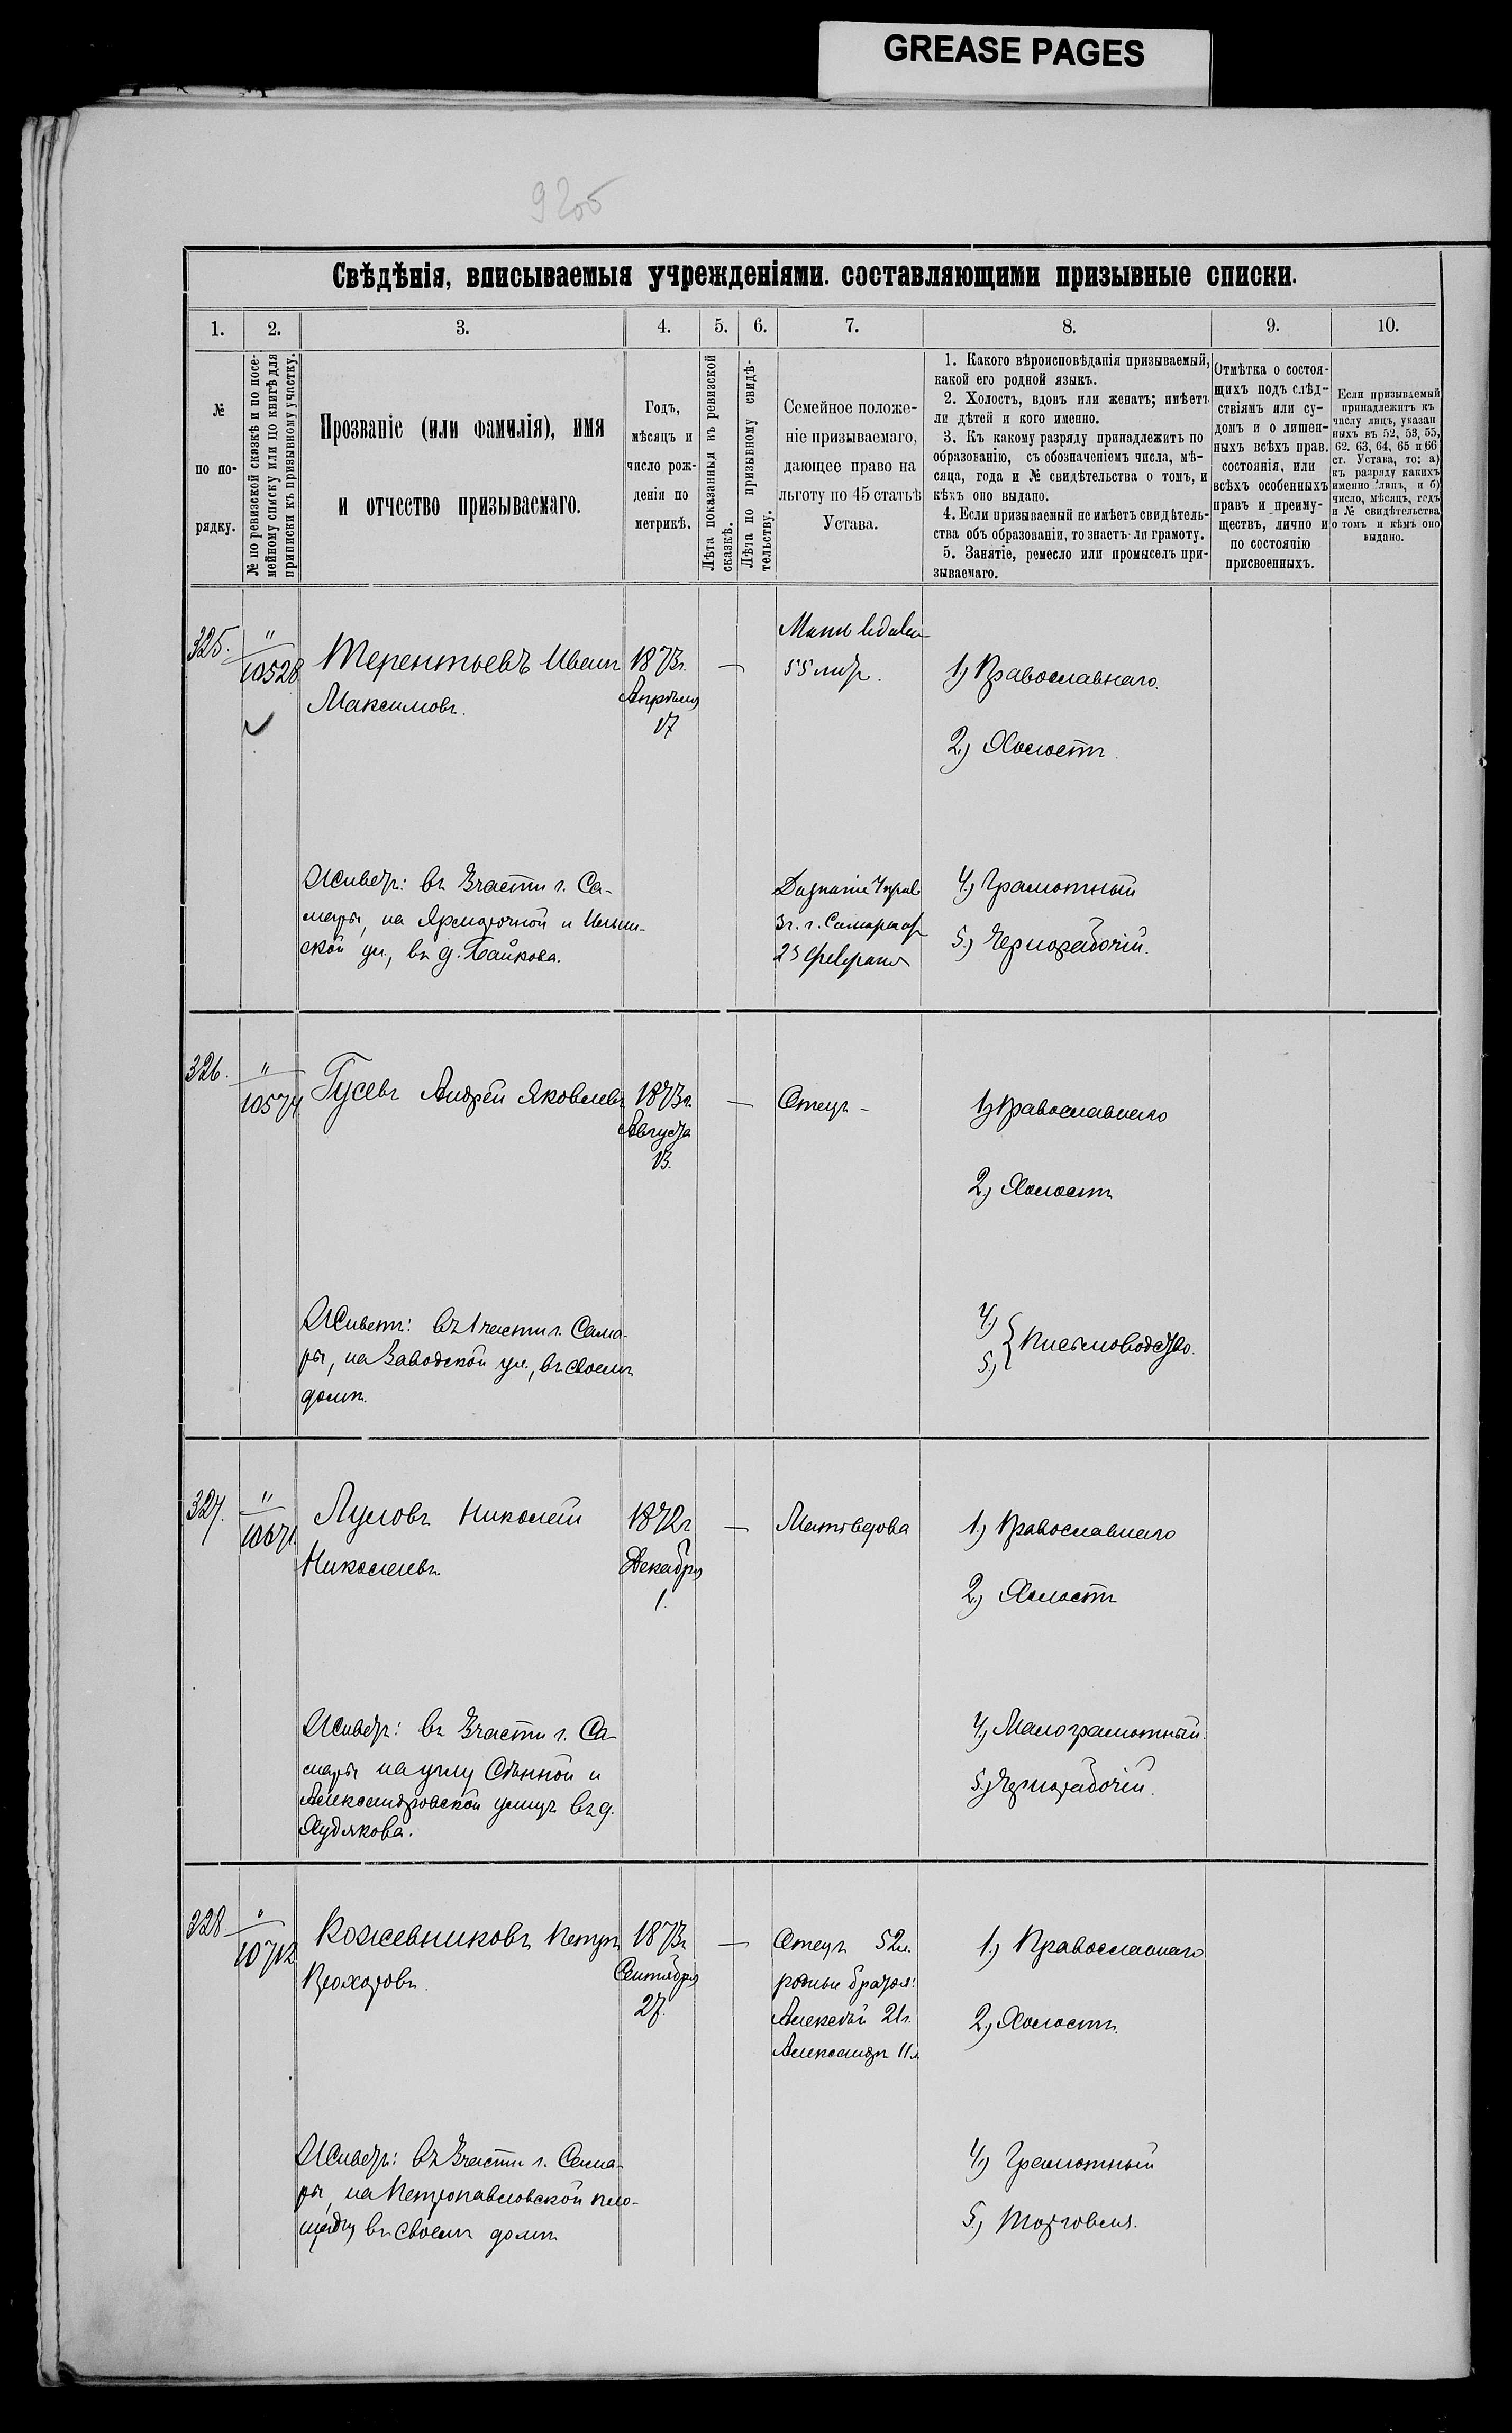 GREASE PAGES
9205
Свѣдѣнія, вписываемыя учрежденіями. составляющими призывные списки.
1. 2. 3. 4. 5. 6. 7. 8. 9. 10.
№
по по-
рядку.
№ по ревизской сказкѣ и по посе-
мейному списку или по книгѣ для
приписки къ призывному участку.
Прозваніе (или фамилія), имя
и отчество призываемаго.
Годъ,
мѣсяцъ и
число рож-
денія по
метрикѣ.
Лѣта показанныя въ ревизской
сказкѣ.
Лѣта по призывному свидѣ-
тельству.
Семейное положе-
ніе призываемаго,
дающее право на
льготу по 45 статьѣ
Устава.
1. Какого вѣроисповѣданія призываемый,
какой его родной языкъ.
2. Холостъ, вдовъ или женатъ; имѣетъ
ли дѣтей и кого именно.
3. Къ какому разряду принадлежитъ по
образованію, съ обозначеніемъ числа, мѣ-
сяца, года и № свидѣтельства о томъ, и
кѣмъ оно выдано.
4. Если призываемый не имѣетъ свидѣтель-
ства объ образованіи, то знаетъ-ли грамоту.
5. Занятіе, ремесло или промыселъ при-
зываемаго.
Отмѣтка о состоя-
щихъ подъ слѣд-
ствіямъ или су-
домъ и о лишен-
ныхъ всѣхъ прав.
состоянія, или
всѣхъ особенныхъ
правъ и преиму-
ществъ, лично и
по состоянію
присвоенныхъ.
Если призываемый
принадлежитъ къ
числу лицъ, указан
ныхъ въ 52, 53, 55,
62. 63, 64, 65 и 66
ст. Устава, то: а)
къ разряду какихъ
именно лицъ, и б)
число, мѣсяцъ, годъ
и № свидѣтельства
о томъ и кѣмъ оно
выдано.
325.
"
10528
Терентьевъ Иванъ
Максимовъ.
1873г.
Апрѣля
17
—
Мать вдова
55 лѣтъ.
1) Православнаго.
2) Холостъ.
Живетъ: въ 3 части г. Са-
мары, на Ярмарочной и Ильин-
ской ул., въ д. Байкова.
Дознаніе
3ч. г. Самары отъ
23 февраля
4) Грамотный
5) Чернорабочій.
326.
"
10574
Гусевъ Андрей Яковлевъ
1873г.
Августа
13.
—
Отецъ –
1) Православнаго
2) Холостъ
Живетъ: въ 1 части г. Сама-
ры, на Заводской ул., въ своемъ
домѣ.
4)
5) { Письмоводство.
327.
"
10671.
Луловъ Николай
Николаевъ
1872г
Декабря
1.
—
Мать вдова
1) Православнаго
2) Холостъ
Живетъ: въ 3 части г. Са-
мары на углу Сѣнной и
Александровской улицъ въ д.
Худякова.
4) Малограмотный.
5) Чернорабочій.
328
"
10712
Кожевниковъ Петръ
Прохоровъ.
1873г
Сентября
27.
—
Отецъ 52л.
родные братья:
Алексѣй 21г.
Александръ 11л.
1) Православнаго
2) Холостъ.
Живетъ: въ 3 части г. Сама-
ры, на Петропавловской пло-
щади, въ своемъ домѣ
4) Грамотный
5) Торговля.